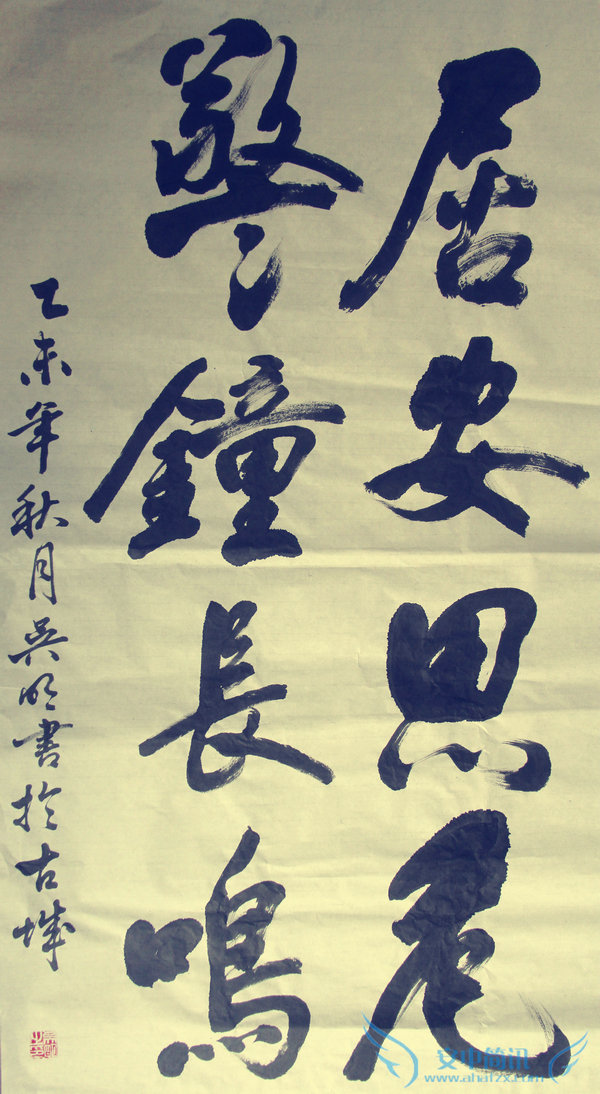 居安思危
警鐘長鳴
乙未年秋月吴明書於古城
安中簡讯
www.ahafzx.com